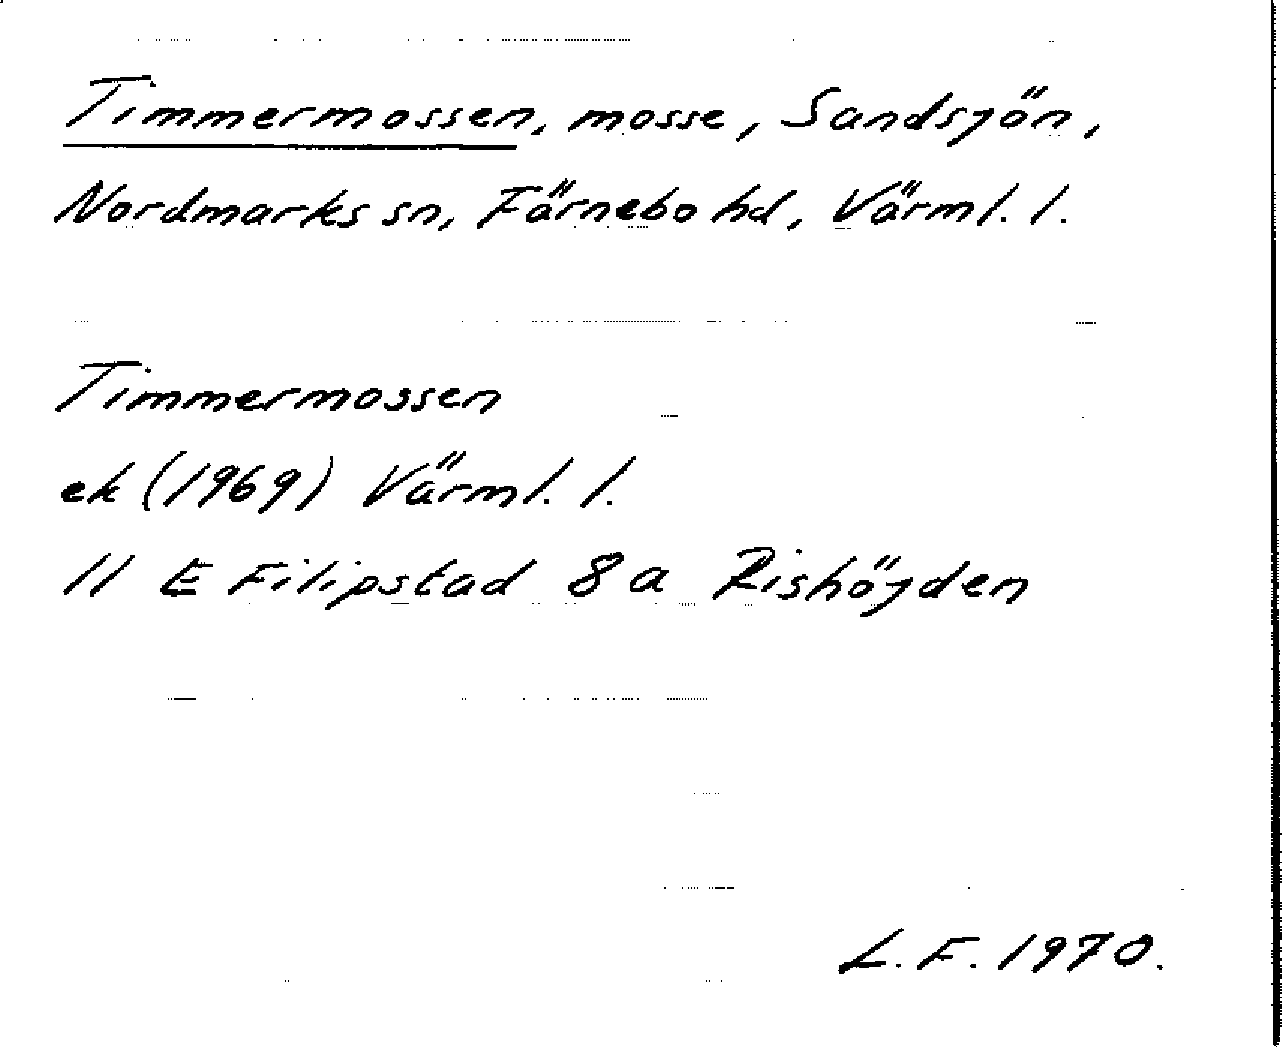 Timmermossen, mosse, Sandsjön,
Nordmarks sn, Färnebo hd, Värml. l.
Timmermossen
ek (1969) Värml. l.
11 E Filipstad 8 a Rishöjden
L. F. 1970.